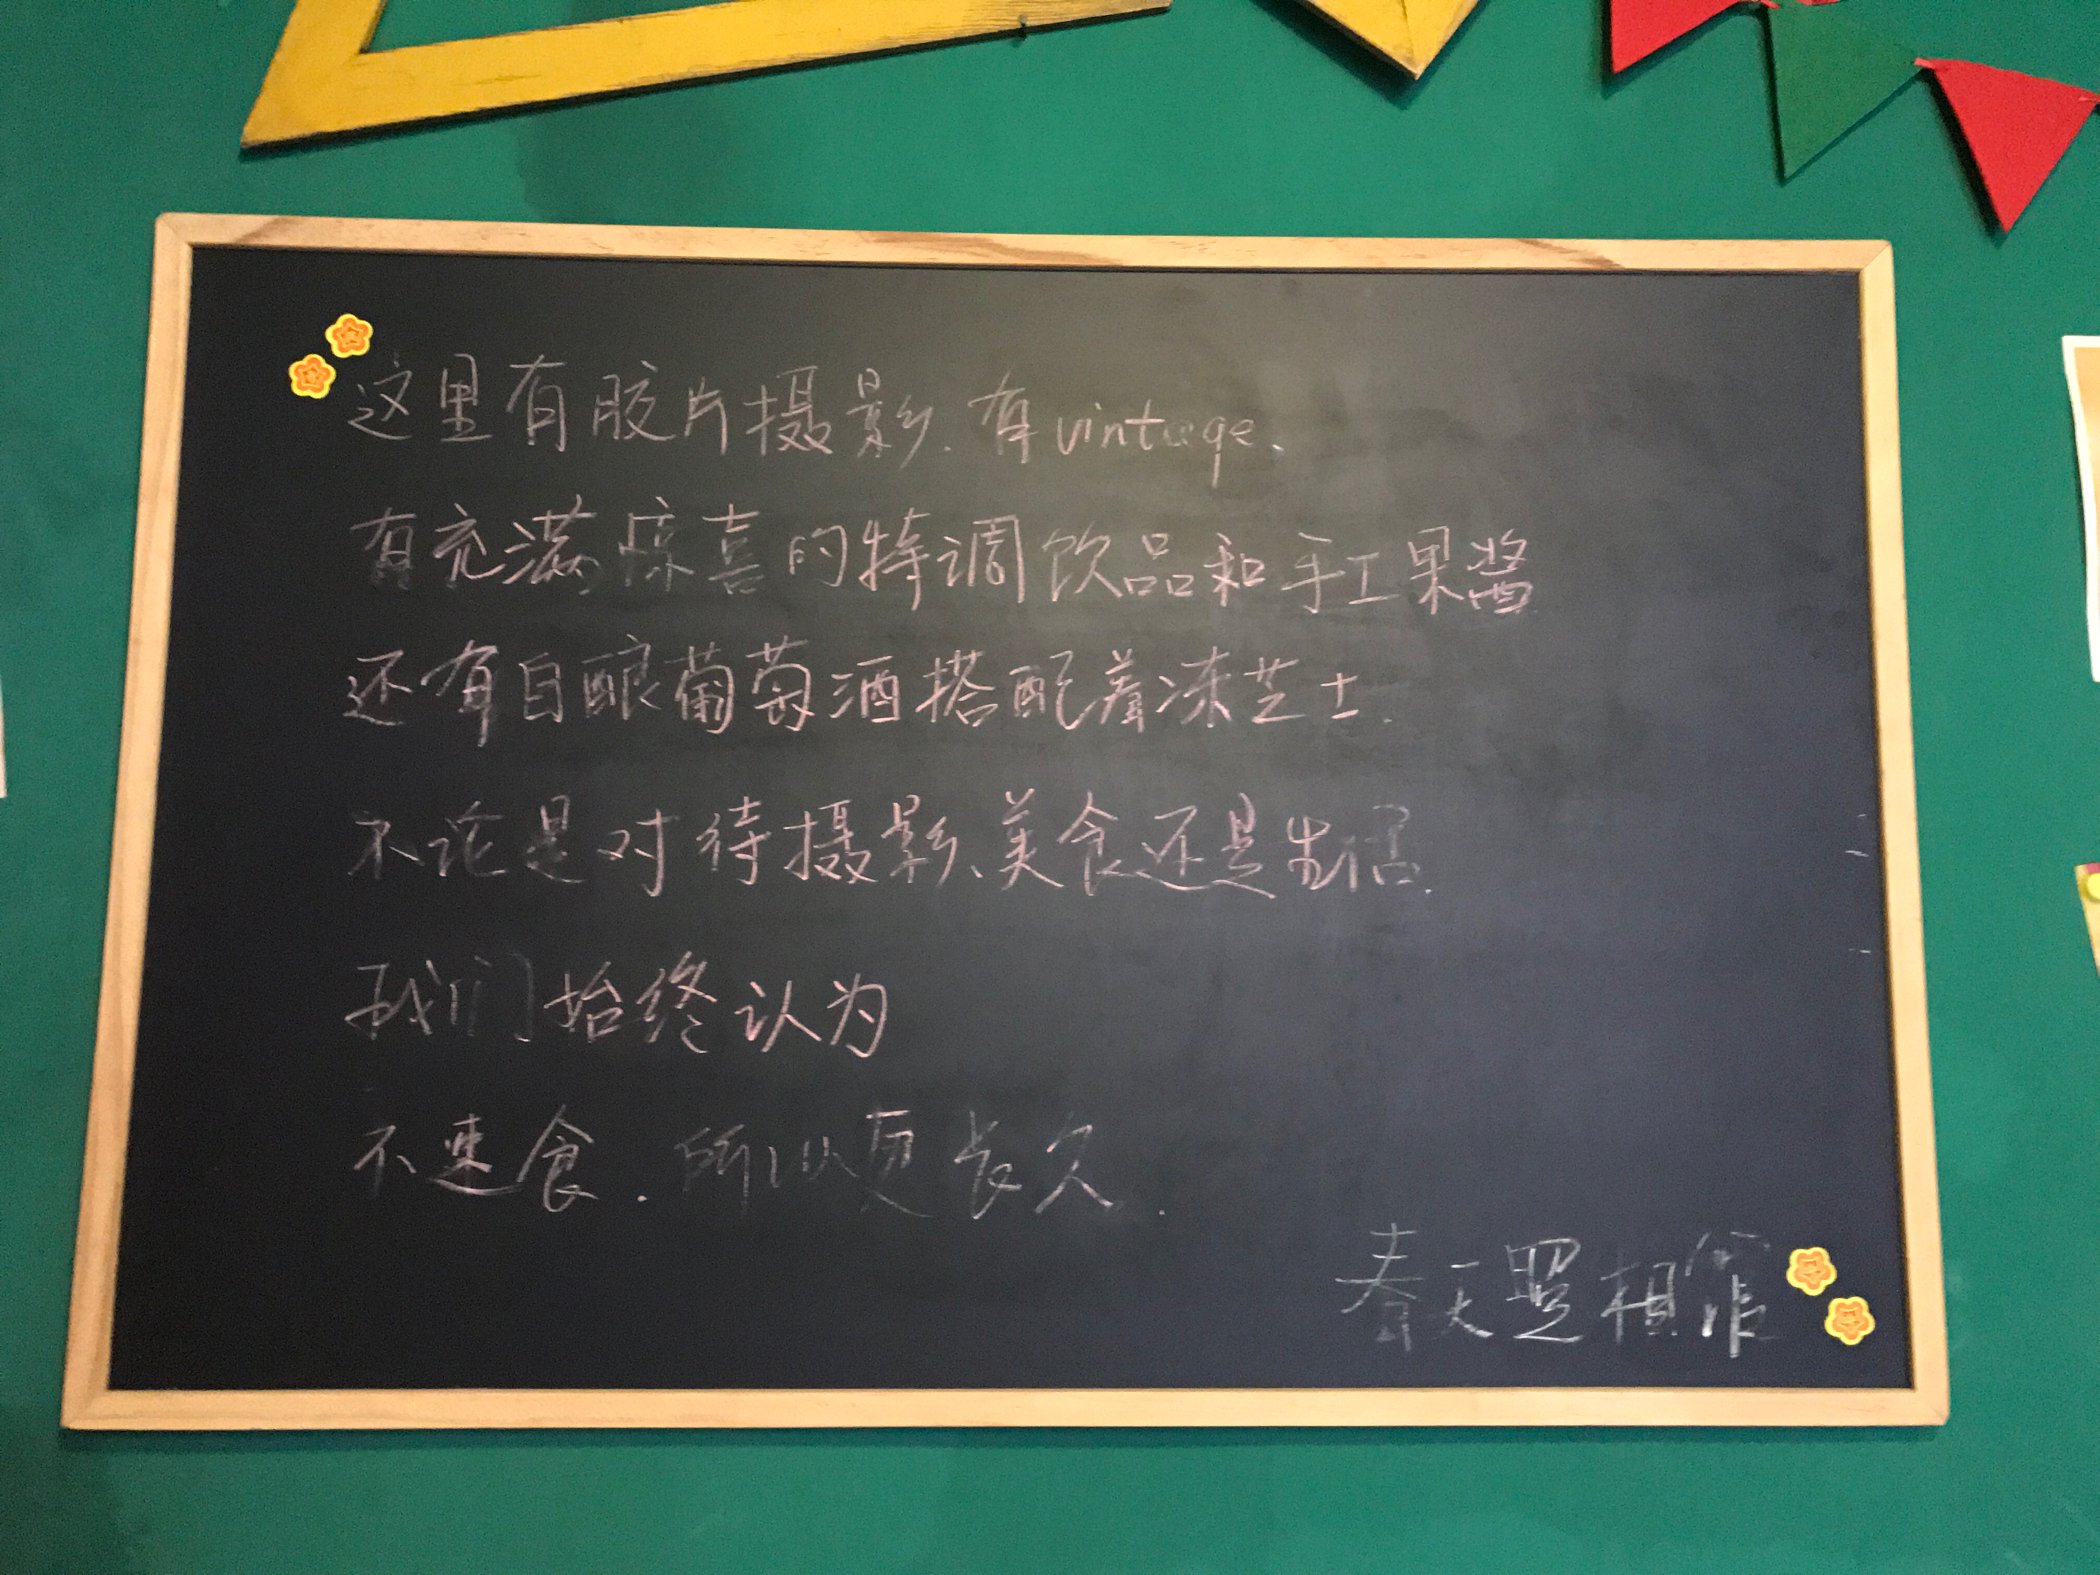 这里有胶片摄影、有vintage、
有充满惊喜的特调饮品和手工果酱
还有自酿葡萄酒搭配着冻芝士.
不论是对待摄影、美食还是生活.
我们始终认为
不速食.所以更长久.
春天照相馆